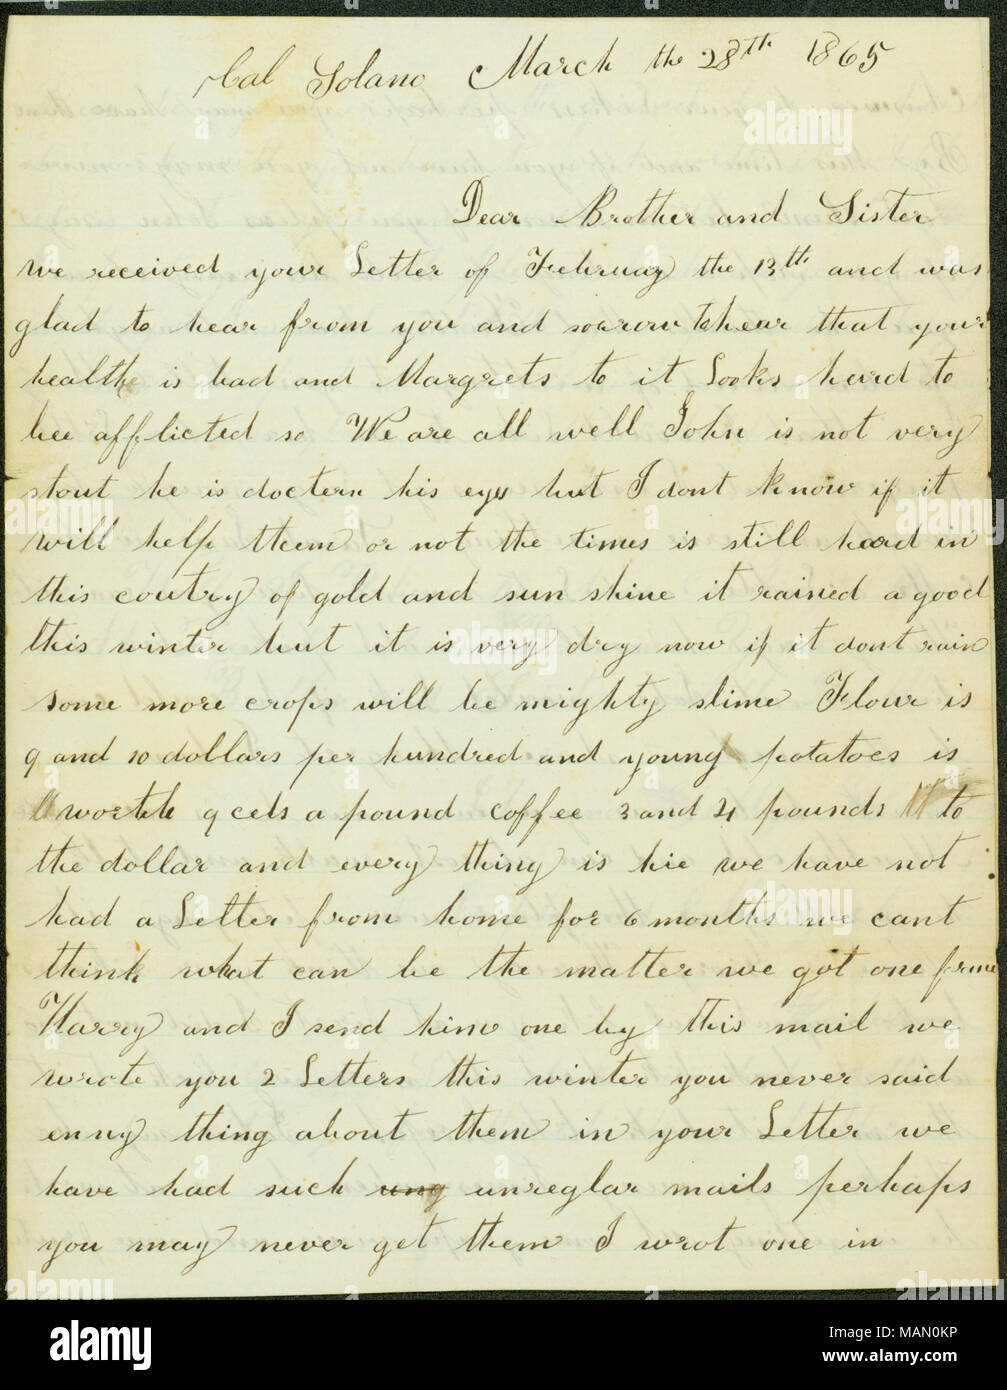 Cal Solano March the 28th 1865
Dear Brother and Sister
we received your Letter of February the 13th and was
glad to hear from you and sorrow to hear that your
healthe is bad and Margrets to it Looks hard to
bee afflicted so We are all well John is not very
stout he is doctern his eys but I dont know if it
will help them or not the times is still hard in
this coutry of gold and sun shine it rained a good
this winter but it is very dry now if it dont rain
some more crops will be mighty slime Flour is
9 and 10 dollars per hundred and young potatoes is
worth 9 cets a pound coffee 3 and 4 pounds to
the dollar and every thing is hie we have not
had a Letter from home for 6 months we cant
think what can be the matter we got one frome
Harry and I send him one by this mail we
wrote you 2 Letters this winter you never said
enny thing about them in your Letter we
have had such ung unreglar mails perhaps
you may never get them I wrot one in
alamy
Image ID: MAN0KP
www.alamy.com